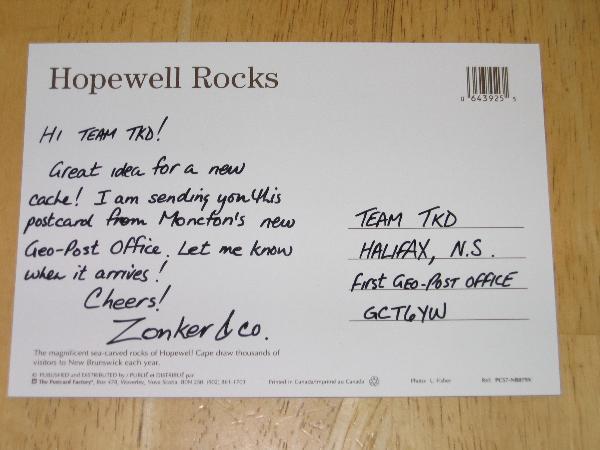 Hopewell Rocks
0 643925 5
HI TEAM TKD!
Great idea for a new
cache! I am sending you this
postcard from Moncton's new
Geo-Post Office. Let me know
when it arrives!
Cheers!
Zonker & co.
TEAM TKD
HALIFAX, N.S.
FIRST GEO-POST OFFICE
GCT6YW
The magnificent sea-carved rocks of Hopewell Cape draw thousands of
visitors to New Brunswick each year.
© PUBLISHED and DISTRIBUTED by / PUBLIÉ et DISTRIBUÉ par
The Postcard Factory, Box 478, Waverley, Nova Scotia B0N 2S0 (902) 861-1703
Printed in Canada/Imprimé au Canada
Photo: L. Fisher
Ref: